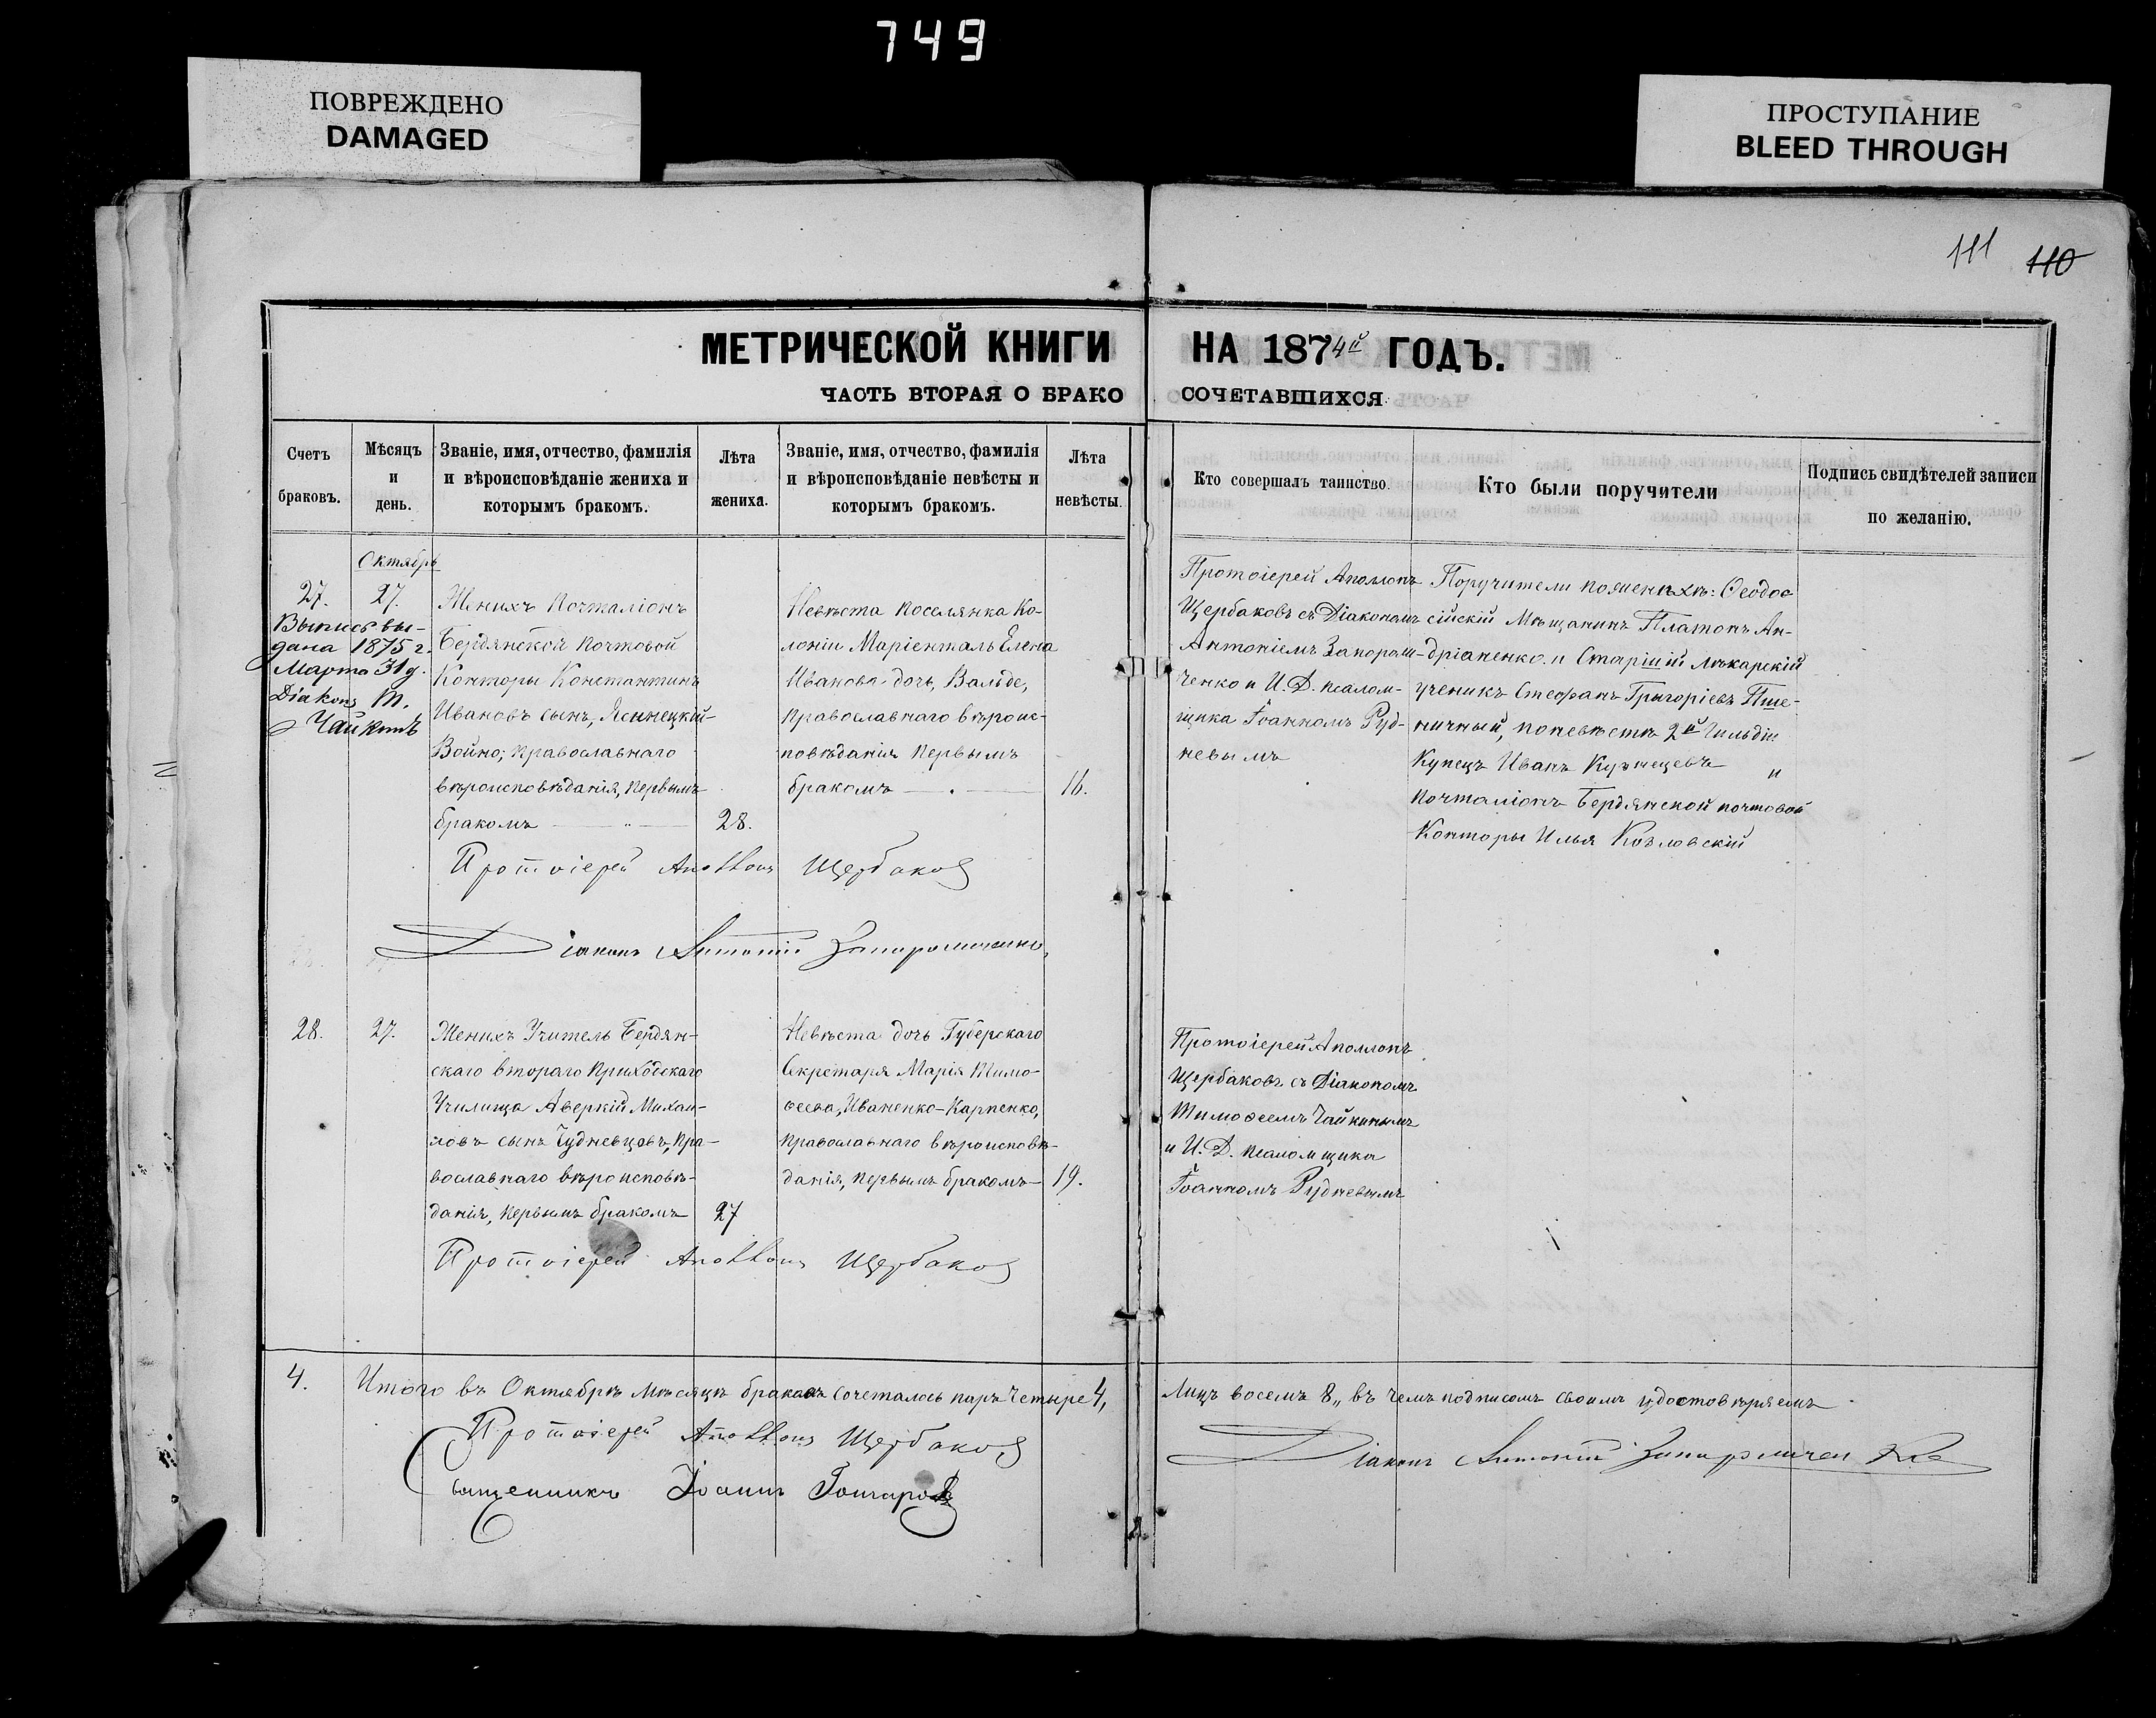 749
ПОВРЕЖДЕНО
DAMAGED
ПРОСТУПАНИЕ
BLEED THROUGH
111 110
МЕТРИЧЕСКОЙ КНИГИ НА 1874й ГОДЪ.
ЧАСТЬ ВТОРАЯ О БРАКОСОЧЕТАВШИХСЯ.
Счетъ
браковъ.
Мѣсяцъ
и
день.
Званіе, имя, отчество, фамилія
и вѣроисповѣданіе жениха и
которымъ бракомъ.
Лѣта
жениха.
Званіе, имя, отчество, фамилія
и вѣроисповѣданіе невѣсты и
которымъ бракомъ.
Лѣта
невѣсты.
Кто совершалъ таинство.
Кто были поручители
Подпись свидѣтелей записи
по желанію.
Октябрь
27.
Выпись вы-
дана 1875 г.
Марта 31 д.
Діаконъ Т.
Чайкинъ
27.
Женихъ Почталіонъ
Бердянской Почтовой
Конторы Константинъ
Ивановъ сынъ, Ясинецкій-
Войно; Православнаго
вѣроисповѣданія, первымъ
бракомъ — " —
28.
Невѣста Поселянка Ко-
лоніи Маріенталь Елена
Иванова дочь, Вальде,
Православнаго вѣроис-
повѣданія первымъ
бракомъ — . —
16.
Протоіерей Аполлонъ
Щербаковъ съ Діакономъ
Антоніемъ Запорош-
ченко и И. Д. псалом-
щика Іоанномъ Руд-
невымъ
Поручители по женихѣ: Ѳеодо-
сійскій Мѣщанинъ Платонъ Ан-
дріаненко и Старшій лѣкарскій
ученикъ Стефанъ Григоріевъ Пше-
ничный, по невѣстѣ 2й Гильдіи
Купецъ Иванъ Кузнецевъ и
Почталіонъ Бердянской почтовой
Конторы Илья Козловскій
Протоіерей Аполлонъ Щербаковъ
Діаконъ Антоній Запорошченко,
28.
27.
Женихъ Учитель Бердян-
скаго втораго Приходскаго
Училища Аверкій Михаи-
ловъ сынъ Чудневцовъ, Пра-
вославнаго вѣроисповѣ-
данія, первымъ бракомъ
27
Невѣста дочь Губерскаго
Секретаря Марія Тимо-
ѳеева, Иваненко-Карпенко,
Православнаго вѣроисповѣ-
данія, первымъ бракомъ —
19.
Протоіерей Аполлонъ
Щербаковъ съ Діакономъ
Тимоѳеемъ Чайкинымъ
и И. Д. псаломщика
Іоанномъ Рудневымъ
Протоіерей Аполлонъ Щербаковъ
4. Итого въ Октябрѣ мѣсяцѣ бракомъ сочеталось паръ четыре 4, Лицъ восемь 8,, въ чемъ подписомъ своимъ удостовѣряемъ
Протоіерей Аполлонъ Щербаковъ
Священникъ Іоаннъ Гончаровъ
Діаконъ Антоній Запорошченко